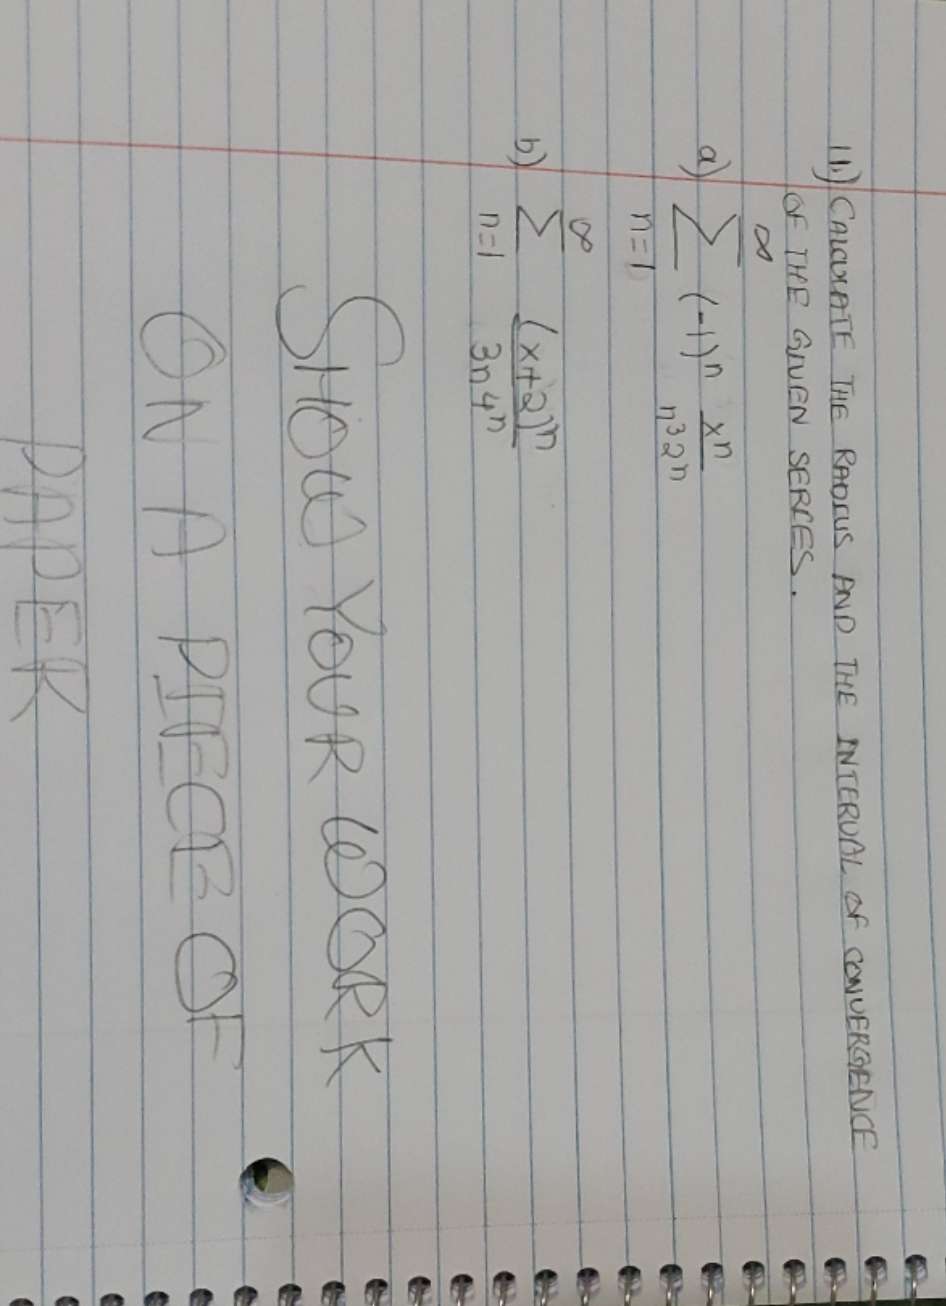 11.) CALCULATE THE RADIUS AND THE INTERVAL OF CONVERGENCE
OF THE GIVEN SERIES.
a) ∞ ∑ n=1 (-1)ⁿ xⁿ / n³2ⁿ
b) ∞ ∑ n=1 (x+2)ⁿ / 3n4ⁿ
SHOW YOUR WORK
ON A PIECE OF
PAPER